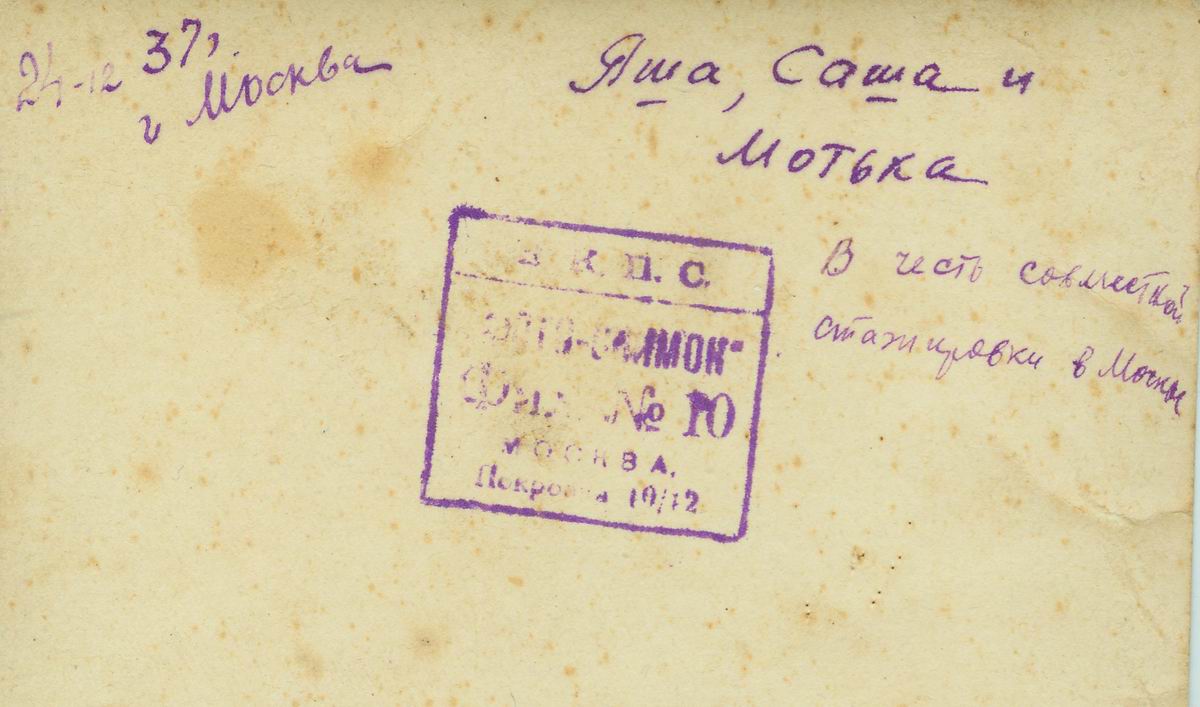 24-12 37г.
г Москва
Яша, Саша и
Мотька
В честь совместной
стажировки в Москве
К. П. С.
№ 10
МОСКВА.
Покровка 19/12